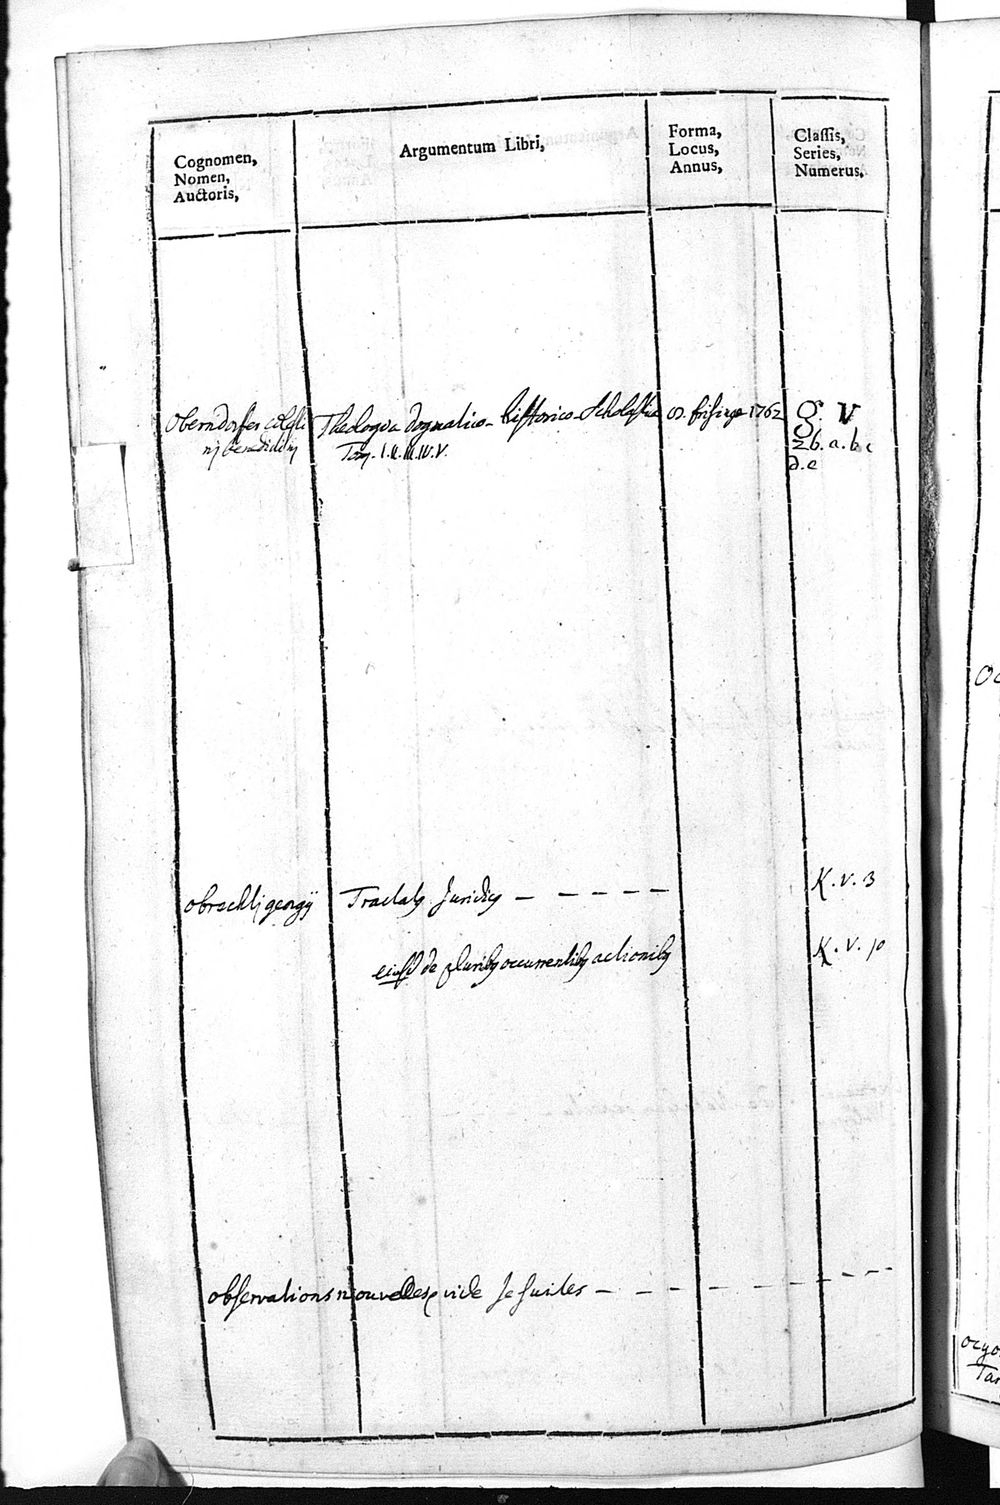 Cognomen,
Nomen,
Auctoris,
Argumentum Libri,
Forma,
Locus,
Annus,
Classis,
Series,
Numerus.
Oberndorfer
Theologia dogmatico-historico-scholastica 8. frisingæ 1762
g. V
Tom. I. II. III. IV. V.
2b. a. b. c
d. e
obrechtj georgij
Tractatq Juridicq - - - - -
K. v. 3
eiusd de pluribq occurrentibq actionibq
K. v. 10
observations nouvelles vide Jesuites - - - - - - - -
Oc
ocyo
Tar